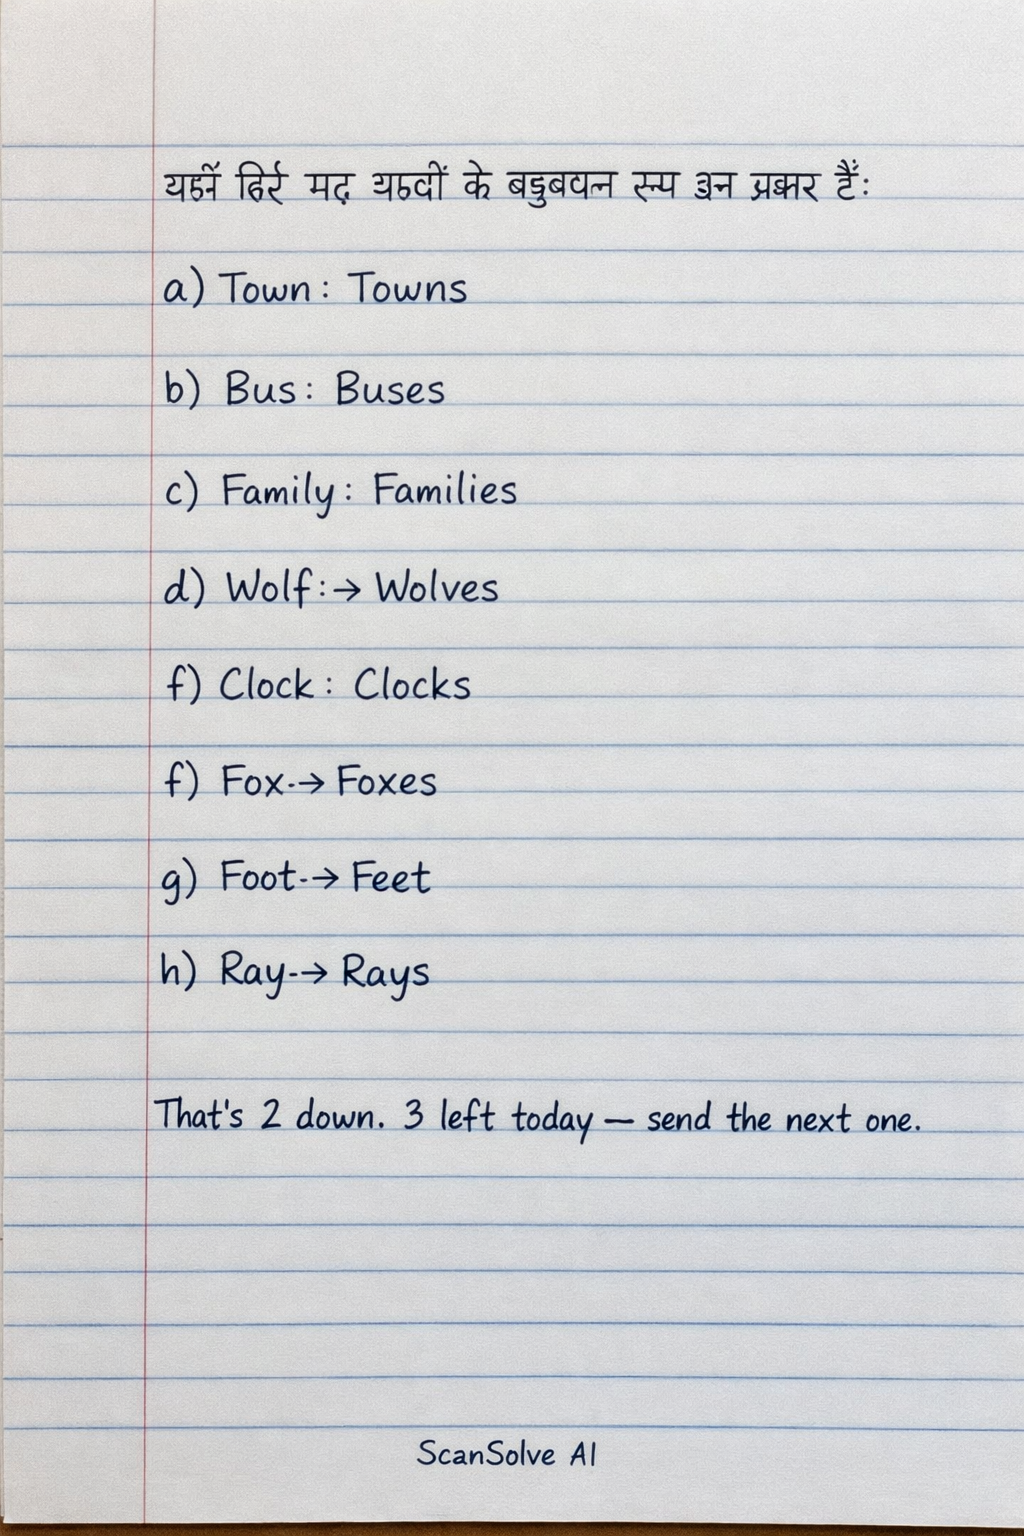 के
a) Town: Towns
b) Bus: Buses
c) Family: Families
d) Wolf:→ Wolves
f) Clock: Clocks
f) Fox-→ Foxes
g) Foot-→ Feet
h) Ray-→ Rays
That's 2 down. 3 left today — send the next one.
ScanSolve AI